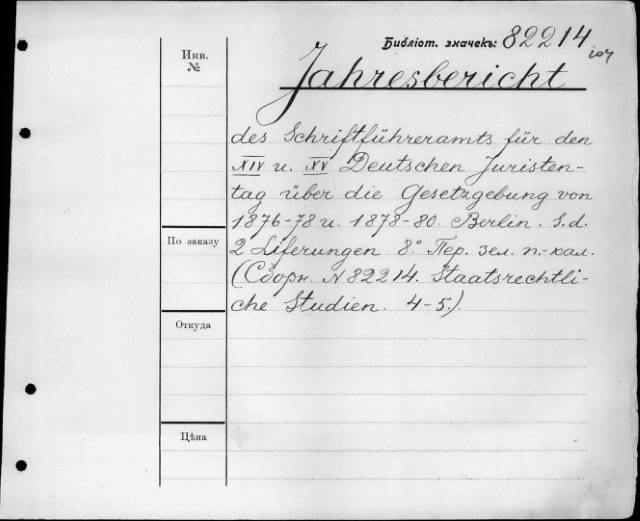 Библіот. значекъ: 82214
Инв.
№
Jahresbericht
des Schriftführeramts für den
XIV u. XV Deutschen Juristen-
tag über die Gesetzgebung von
1876-78 u. 1878-80. Berlin. S.d.
По заказу
2 Liferungen 8° Пер. зел. п.-кал.
(Сборн. N 82214. Staatsrechtli-
che Studien. 4-5.)
Откуда
Цѣна